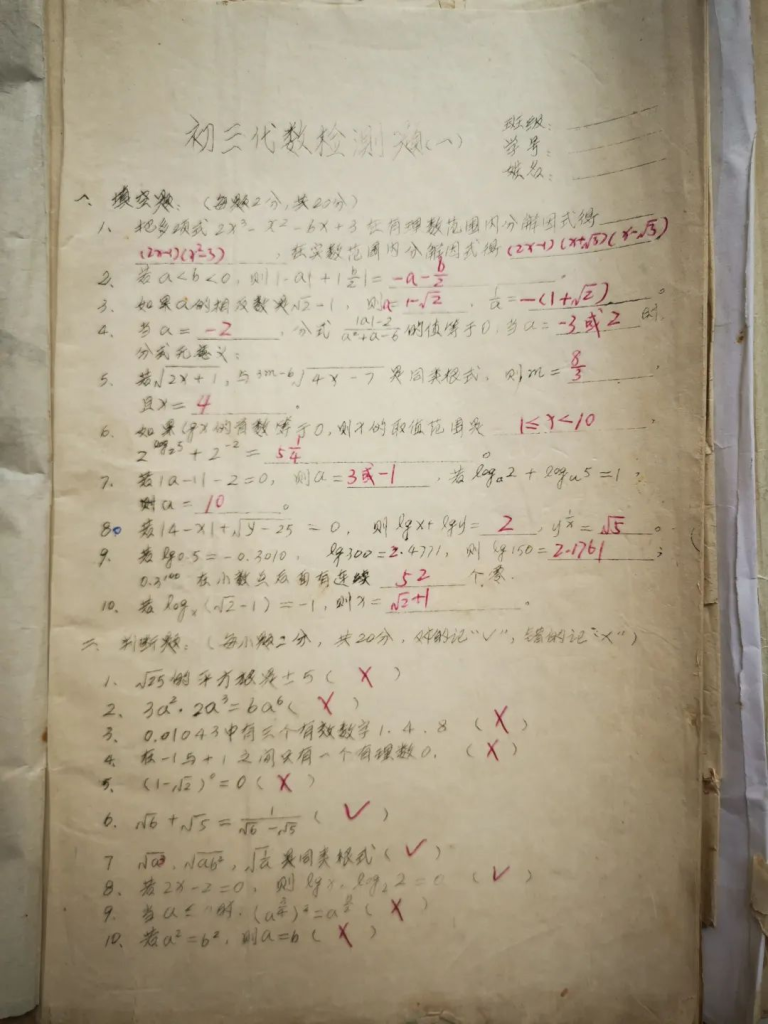 初三代数检测题(一)
班级:
学号:
姓名:
一、填空题:(每题2分,共20分)
1、把多项式 2x³-x²-6x+3 在有理数范围内分解因式得
(2x-1)(x²-3) ,在实数范围内分解因式得 (2x-1)(x+√3)(x-√3)
2、若 a<b<0,则 |-a|+|b/2|= -a-b/2 。
3、如果a的相反数是√2-1,则a= 1-√2 ,1/a= -(1+√2) 。
4、当 a= -2 ,分式 (|a|-2)/(a²+a-6) 的值等于0,当 a= -3或2 时,
分式无意义;
5、若√(2x+1),与 ³ᵐ⁻⁶√(4x-7) 是同类根式,则 m= 8/3 ,
且x= 4 。
6、如果lgx的首数等于0,则x的取值范围是 1≤x<10
2^(log₂5)+2⁻²= 5 1/4 。
7、若 |a-1|-2=0, 则a= 3或-1 ,若 logₐ2+logₐ5=1,
则 a= 10 。
8、若 |4-x|+√(y-25) = 0, 则 lgx+lgy= 2 ,y^(1/x)= √5 。
9、若 lg0.5=-0.3010, lg300=2.4771,则 lg150= 2.1761 ;
0.3¹⁰⁰ 在小数点后面有连续 52 个零.
10、若 logₓ(√2-1)=-1,则x= √2+1 。
二、判断题:(每小题二分,共20分,对的记“✓”,错的记“×”)
1、√25的平方根是±5( × )
2、3a²·2a³=6a⁶( × )
3、0.01043中有三个有效数字1.4.8 ( × )
4、在-1与+1之间只有一个有理数0. ( × )
5、(1-√2)⁰=0( × )
6、√6+√5=1/(√6-√5) ( ✓ )
7 √a³.√ab²,√(1/a) 是同类根式( ✓ )
8、若2x-2=0,则 lgx·log₂2=0 ( ✓ )
9、当a≤ 时, =a ( × )
10、若a²=b²,则a=b( × )